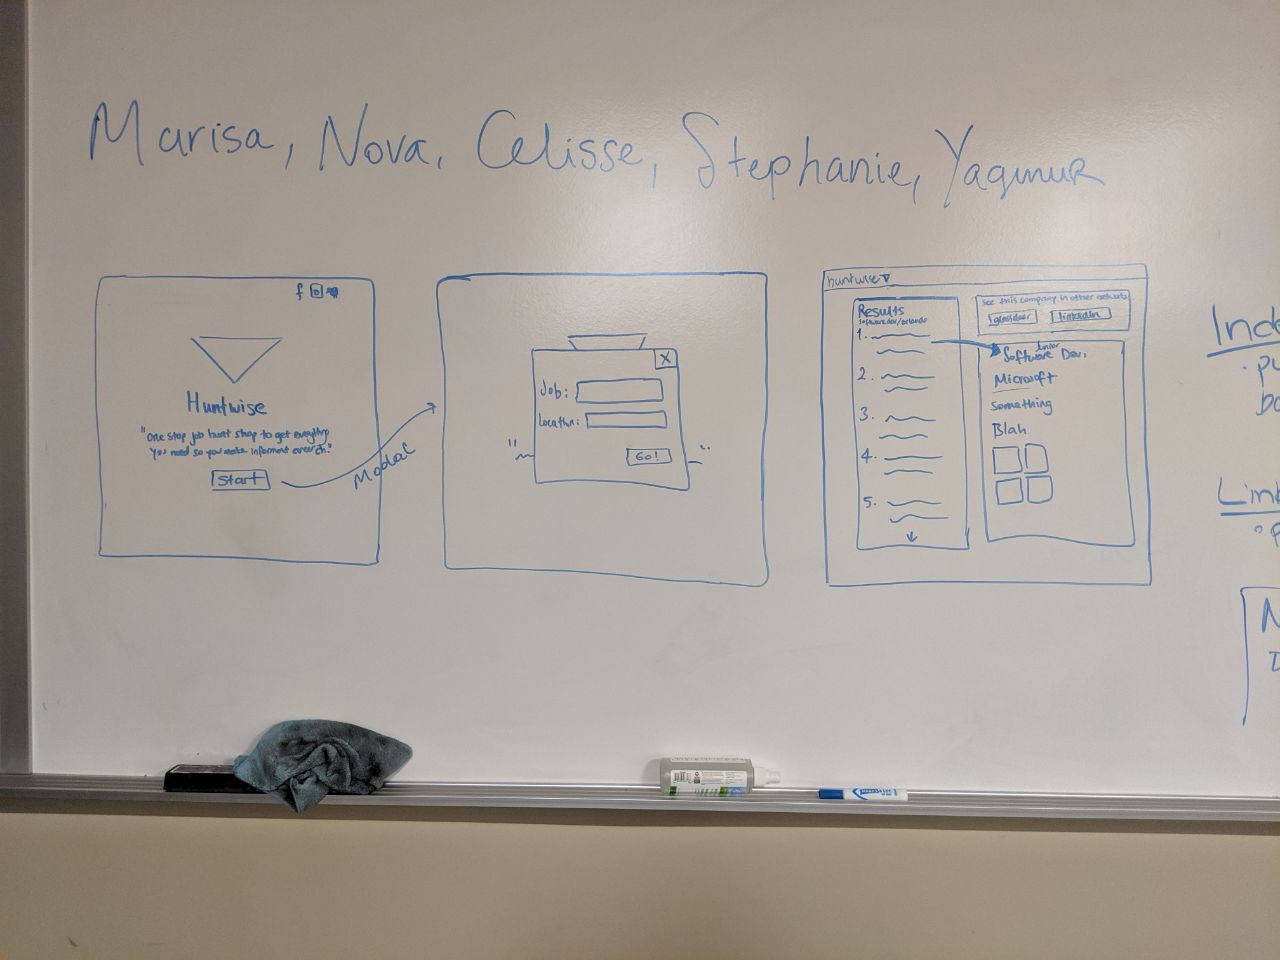 Marisa, Nova, Celisse, Stephanie, Yagmur
f
Huntwise
"One stop job hunt shop to get everything
you need so you make informent search."
Start
Modal
X
Job:
Location:
Go!
huntwise
Results
software dev/orlando
1.
2.
3.
4.
5.
See this company in other networks
glassdoor
linkedIn
Junior
Software Dev.
Microsoft
Something
Blah